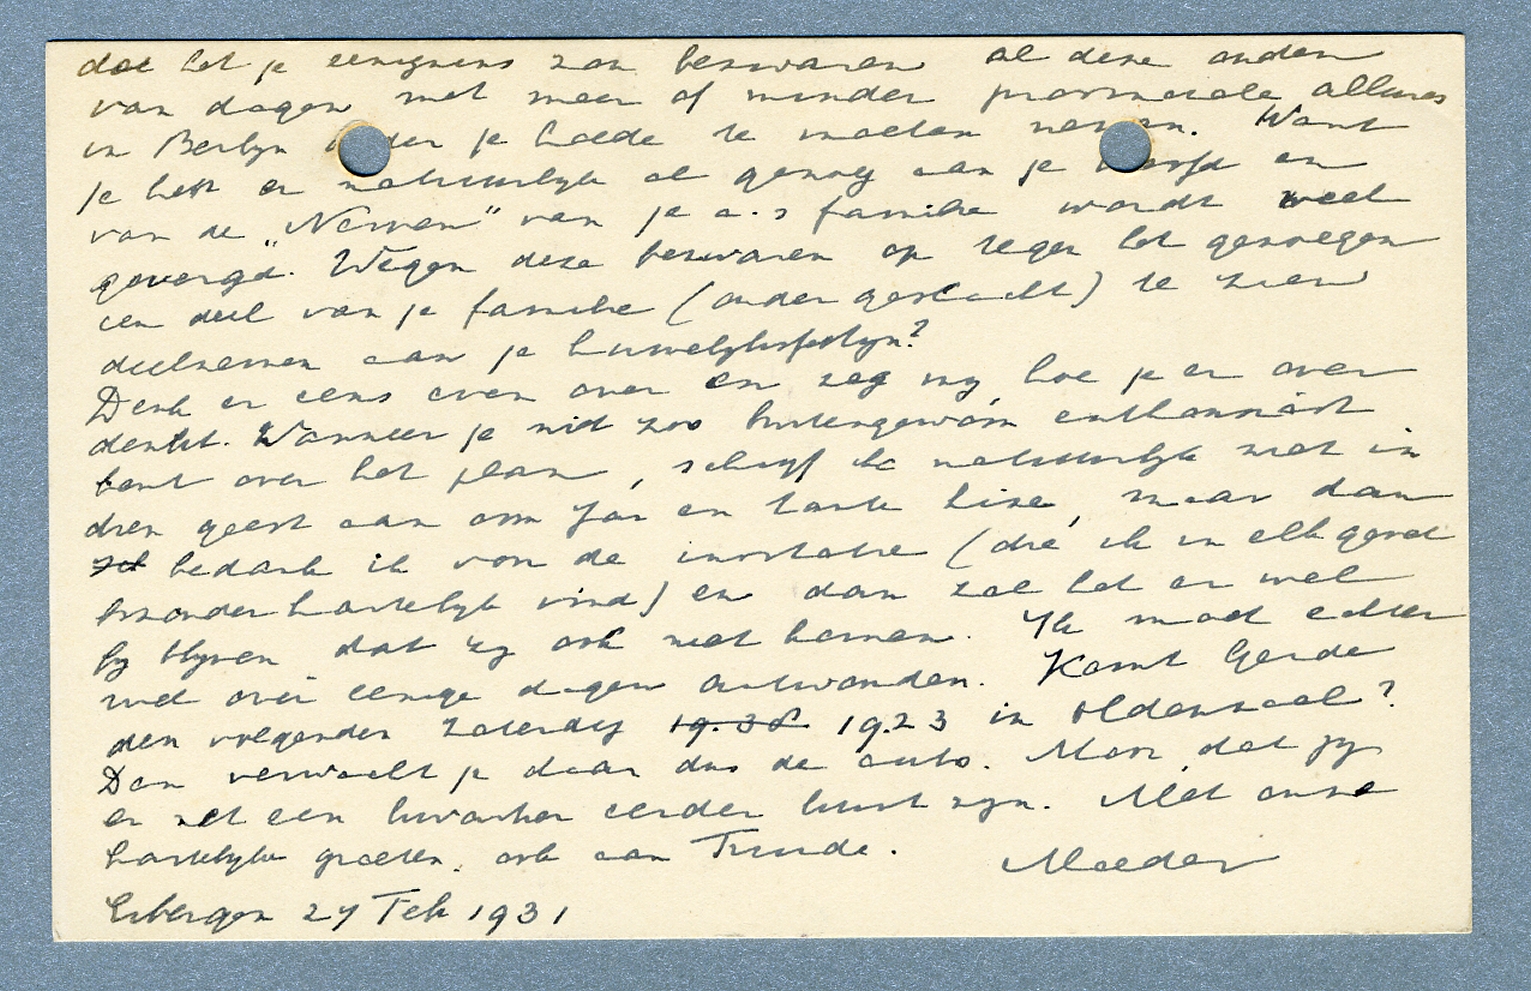 dat het je eenigszins zou bezwaren al deze ouden
van dagen met meer of minder provinciale allures
in Berlijn onder je hoede te moeten nemen. Want
je hebt er natuurlijk al genoeg aan je hoofd en
van de „Nerven" van je a.s familie wordt veel
gevergd. Wegen deze bezwaren op tegen het genoegen
een deel van je familie (ouder geslacht) te zien
deelnemen aan je huwelijksfestijn?
Denk er eens even over en zeg mij, hoe je er over
denkt. Wanneer je niet zoo buitengewoon enthousiast
bent over het plan, schrijf ik natuurlijk niet in
dien geest aan om Jan en tante Lise, maar dan
bedank ik voor de invitatie (die ik in elk geval
bizonder hartelijk vind) en dan zal het er wel
bij blijven dat zij ook niet komen. Ik moet echter
wel over eenige dagen antwoorden. Komt Gerda
den volgenden Zaterdag 19.38 19.23 in Oldenzaal?
Dan verwacht je daar dus de auto. Mooi, dat jij
er net een kwartier eerder kunt zijn. Met onze
hartelijke groeten, ook aan Trude. Moeder
Eibergen 27 Feb 1931